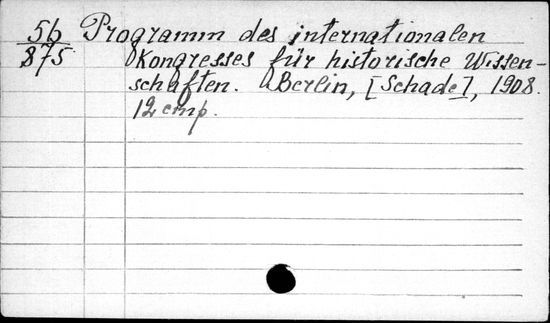 56 Programm des internationalen
875 Kongresses für historische Wissen-
schaften. Berlin, [Schade], 1908.
12 стр.